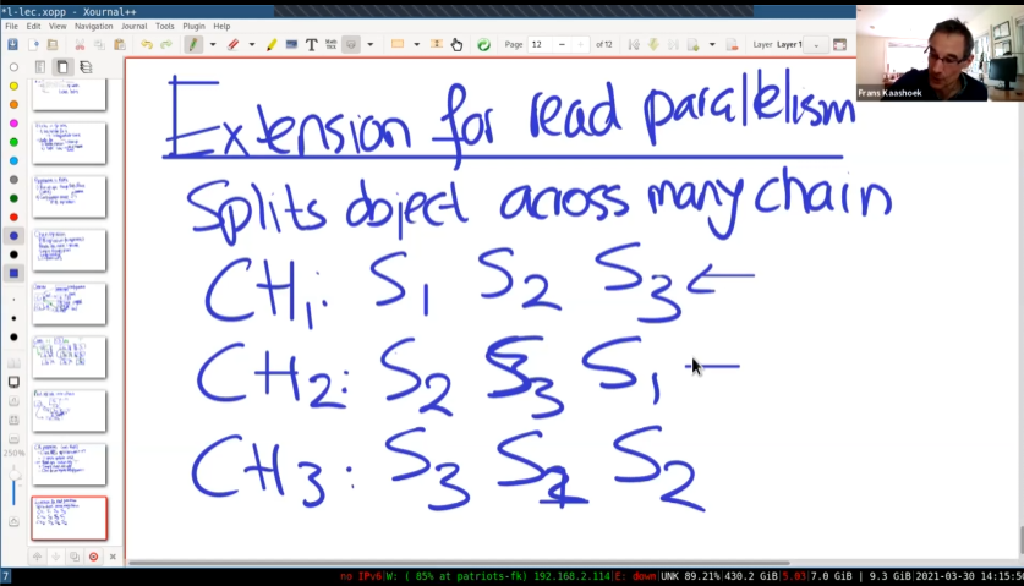 *l-lec.xopp - Xournal++
File Edit View Navigation Journal Tools Plugin Help
Page 12 of 12 Layer Layer 1
Frans Kaashoek
Extension for read parallelism
Splits object across many chain
CH1: S1 S2 S3 ←
CH2: S2 S3 S1 ←
CH3: S3 S1 S2
250%
7 no IPv6|W: ( 85% at patriots-fk) 192.168.2.114|E: down|UNK 89.21%|430.2 GiB|5.03|7.0 GiB | 9.3 GiB|2021-03-30 14:15:5